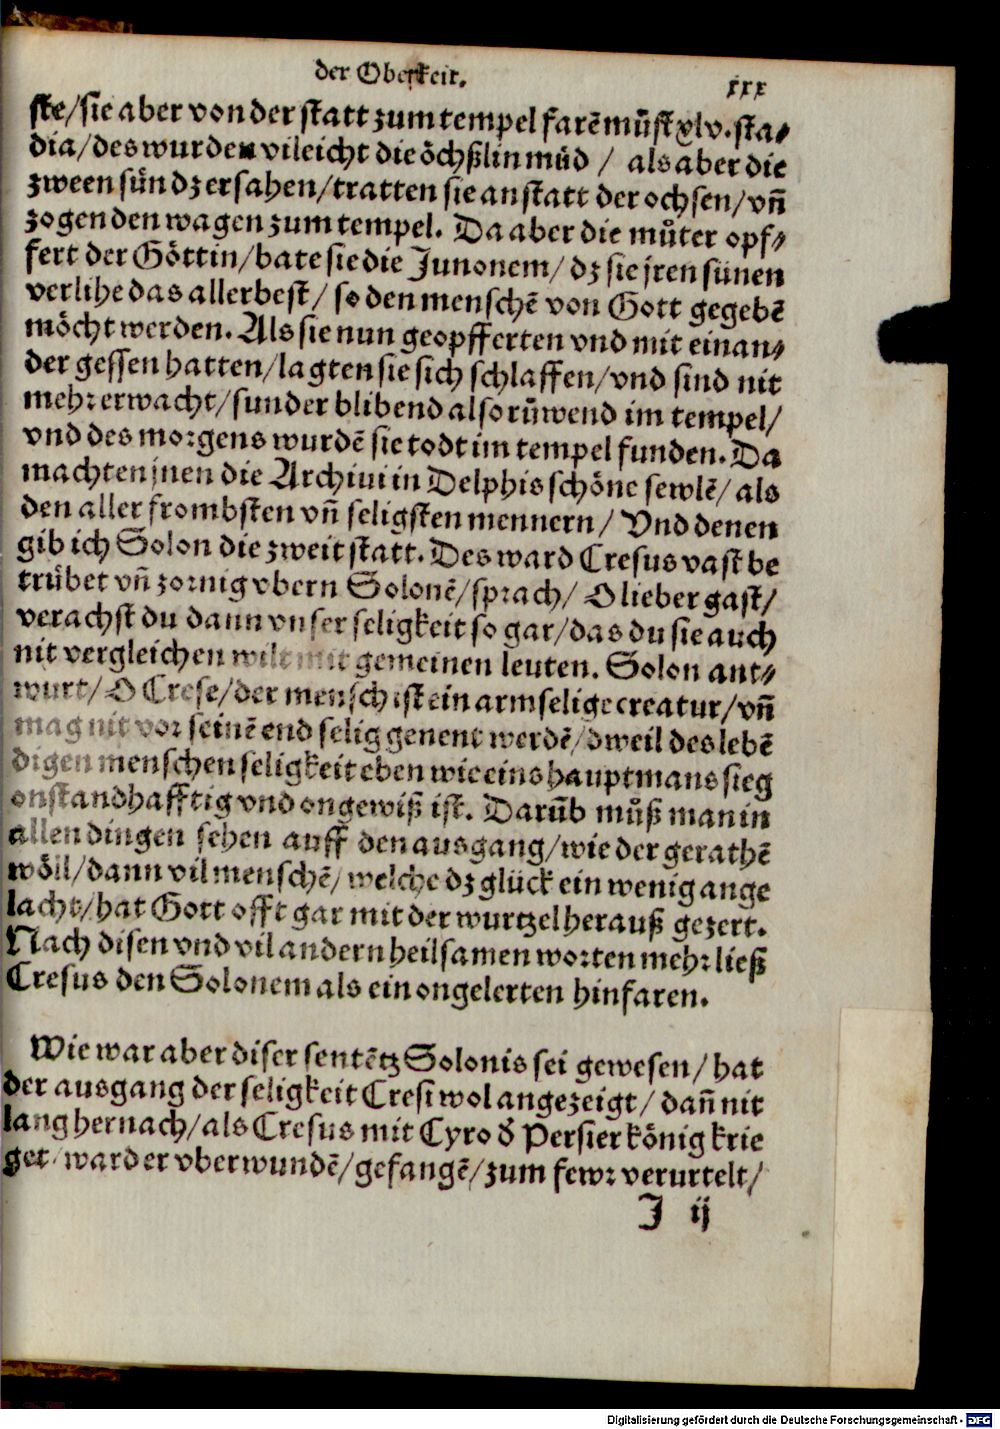 der Oberkeit.
xxx
ste/sie aber von der statt zum tempel farẽ můst xlv. sta⸗
dia/des wurden vileicht die öchßlin müd / als aber die
zween sün dz ersahen/tratten sie an statt der ochsen/vñ
zogen den wagen zum tempel. Da aber die můter opf⸗
fert der Göttin/bate sie die Junonem/ dz sie jren sünen
verlihe das allerbest/ so den menschẽ von Gott gegebẽ
möcht werden. Als sie nun geopfferten vnd mit einan⸗
der gessen hatten/lagten sie sich schlaffen/vnd sind nit
mehr erwacht/sunder blibend also rüwend im tempel/
vnd des morgens wurdẽ sie todt im tempel funden. Da
machten jnen die Archiui in Delphis schöne sewlẽ/ als
den aller frombsten vñ seligsten mennern/ Vnd denen
gib ich Solon die zweit statt. Des ward Cresus vast be
trübet vñ zornig vbern Solonẽ/sprach/ O lieber gast/
verachst du dann vnser seligkeit so gar/das du sie auch
nit vergleichen wilt mit gemeinen leuten. Solon ant⸗
wurt/ O Crese/der mensch ist ein armselige creatur/vñ
mag nit vor seinẽ end selig genent werdẽ/dweil des lebẽ
digen menschen seligkeit eben wie eins hauptmans sieg
onstandhafftig vnd ongewiß ist. Darũb můß man in
allen dingen sehen auff den ausgang/wie der gerathẽ
wöll/dann vil menschẽ/welche dz glück ein wenig ange
lacht/hat Gott offt gar mit der wurtzel herauß gezert.
Nach disen vnd vil andern heilsamen worten mehr ließ
Cresus den Solonem als ein ongelerten hinfaren.
Wie war aber diser sentẽtz Solonis sei gewesen/ hat
der ausgang der seligkeit Cresi wol angezeigt/ dañ nit
lang hernach/als Cresus mit Cyro d̕ Persier könig krie
get/ward er vberwundẽ/gefangẽ/zum fewr verurtelt/
J ij
Digitalisierung gefördert durch die Deutsche Forschungsgemeinschaft - DFG